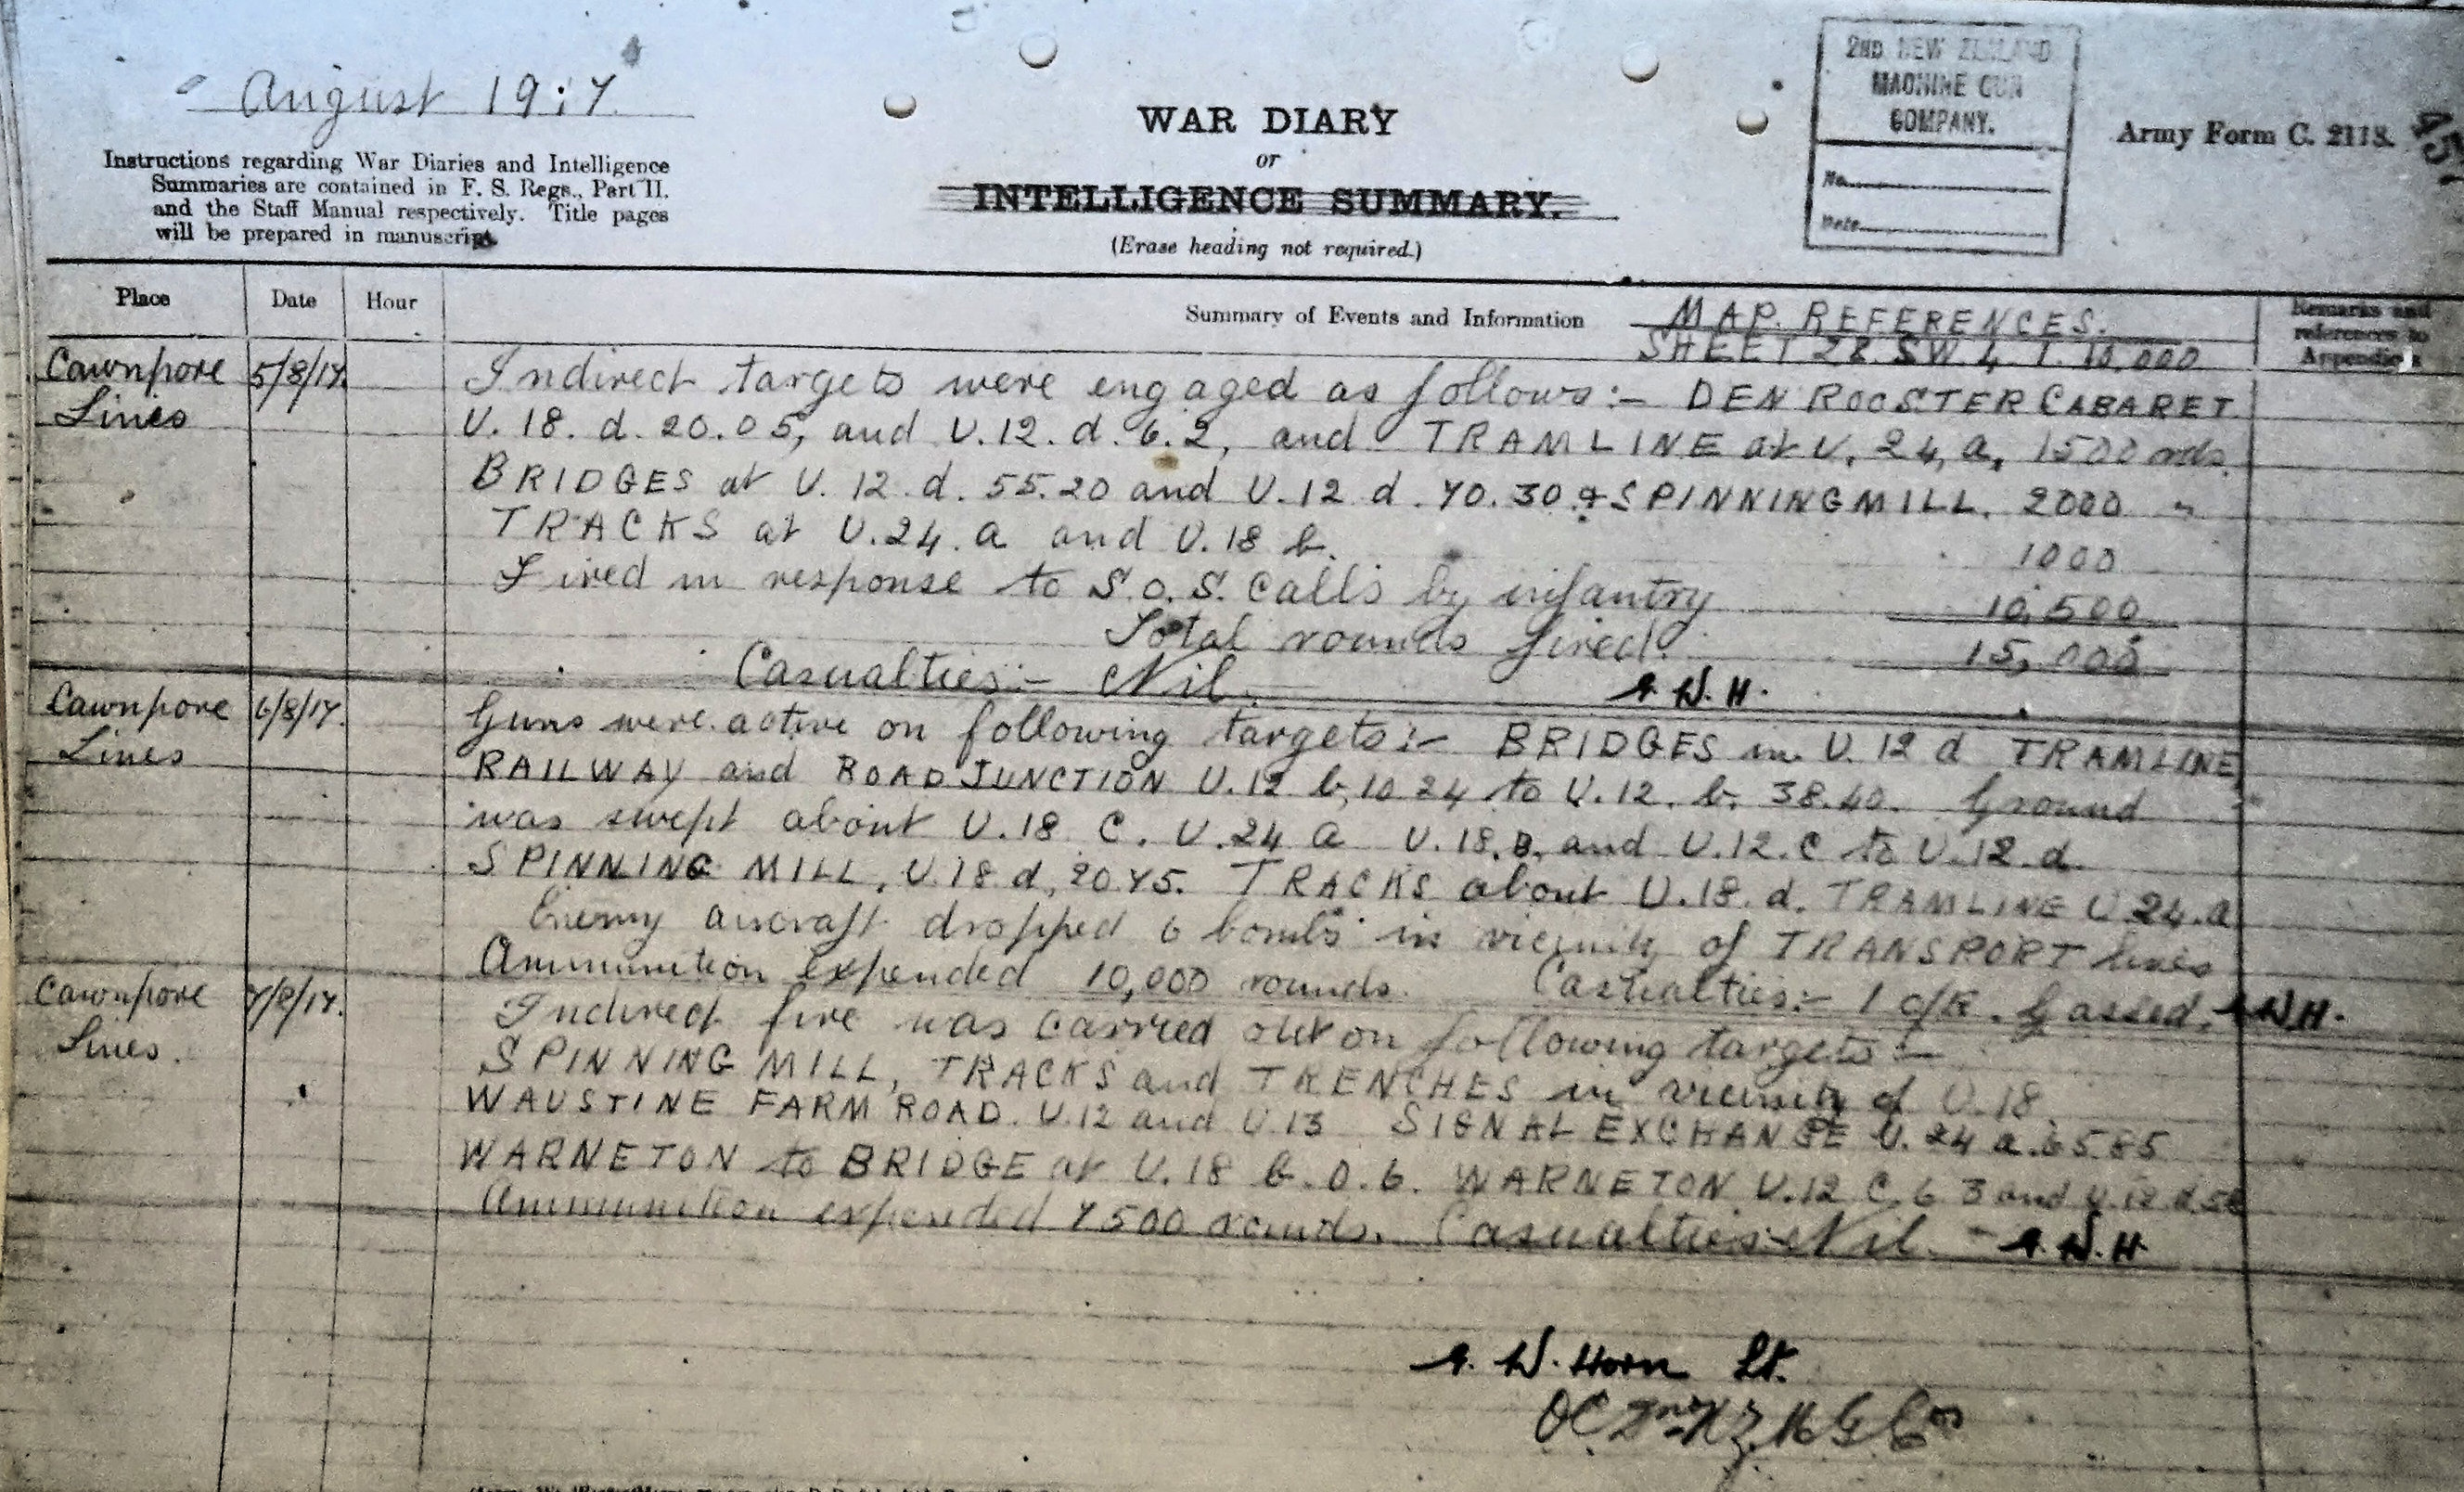 August 1917.
Instructions regarding War Diaries and Intelligence
Summaries are contained in F. S. Regs., Part II.
and the Staff Manual respectively. Title pages
will be prepared in manuscript.
WAR DIARY
or
INTELLIGENCE SUMMARY.
(Erase heading not required.)
2ND NEW ZEALAND
MACHINE GUN
COMPANY.
No.
Date
Army Form C. 2118.
Place
Date
Hour
Summary of Events and Information
MAP REFERENCES.
SHEET 28 SW 4 1. 10,000
Remarks and
references to
Appendices
Cawnpore 5/8/17. Indirect targets were engaged as follows:- DEN ROOSTER CABARET
Lines U. 18. d. 20.05, and U.12. d. 6.2, and TRAMLINE at U. 24, a, 1500 rds.
BRIDGES at U. 12. d. 55.20 and U.12 d. 70. 30 & SPINNING MILL. 2000 "
TRACKS at U.24. a and U.18 b. 1000
Fired in response to S.O.S. calls by infantry 10,500
Total rounds fired. 15,000
Casualties:- Nil. A. W. H.
Cawnpore 6/8/17. Guns were active on following targets:- BRIDGES in U. 12 d TRAMLINE
Lines RAILWAY and ROAD JUNCTION U.12 b, 10 24 to U.12. b. 38.40. Ground
was swept about U.18 C. U.24 a U.18.B. and U.12.C to U.12.d
SPINNING MILL, U.18 d, 20.75. TRACKS about U.18.d. TRAMLINE U 24.a
Enemy aircraft dropped 6 bombs in vicinity of TRANSPORT lines
Ammunition expended 10,000 rounds. Casualties:- 1 O/R. Gassed. A.W.H.
Cawnpore 7/8/17. Indirect fire was carried out on following targets:-
Lines. SPINNING MILL, TRACKS and TRENCHES in vicinity of U.18.
WAUSTINE FARM ROAD. U.12 and U.13 SIGNAL EXCHANGE U. 24 a.65.85
WARNETON to BRIDGE at U. 18 b. 0. 6. WARNETON U.12 C. 6 3 and U.12.d
Ammunition expended 7500 rounds. Casualties:- Nil. - A. W. H
A. W. Horn Lt.
OC 2nd N Z M G Coy